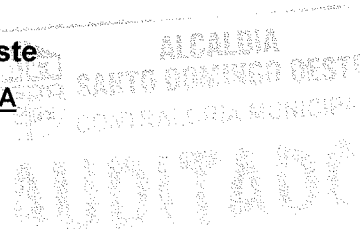 ste
A
ALCALDIA
SANTO DOMINGO OESTE
CONTRALLORIA MUNICIPAL
AUDITADO